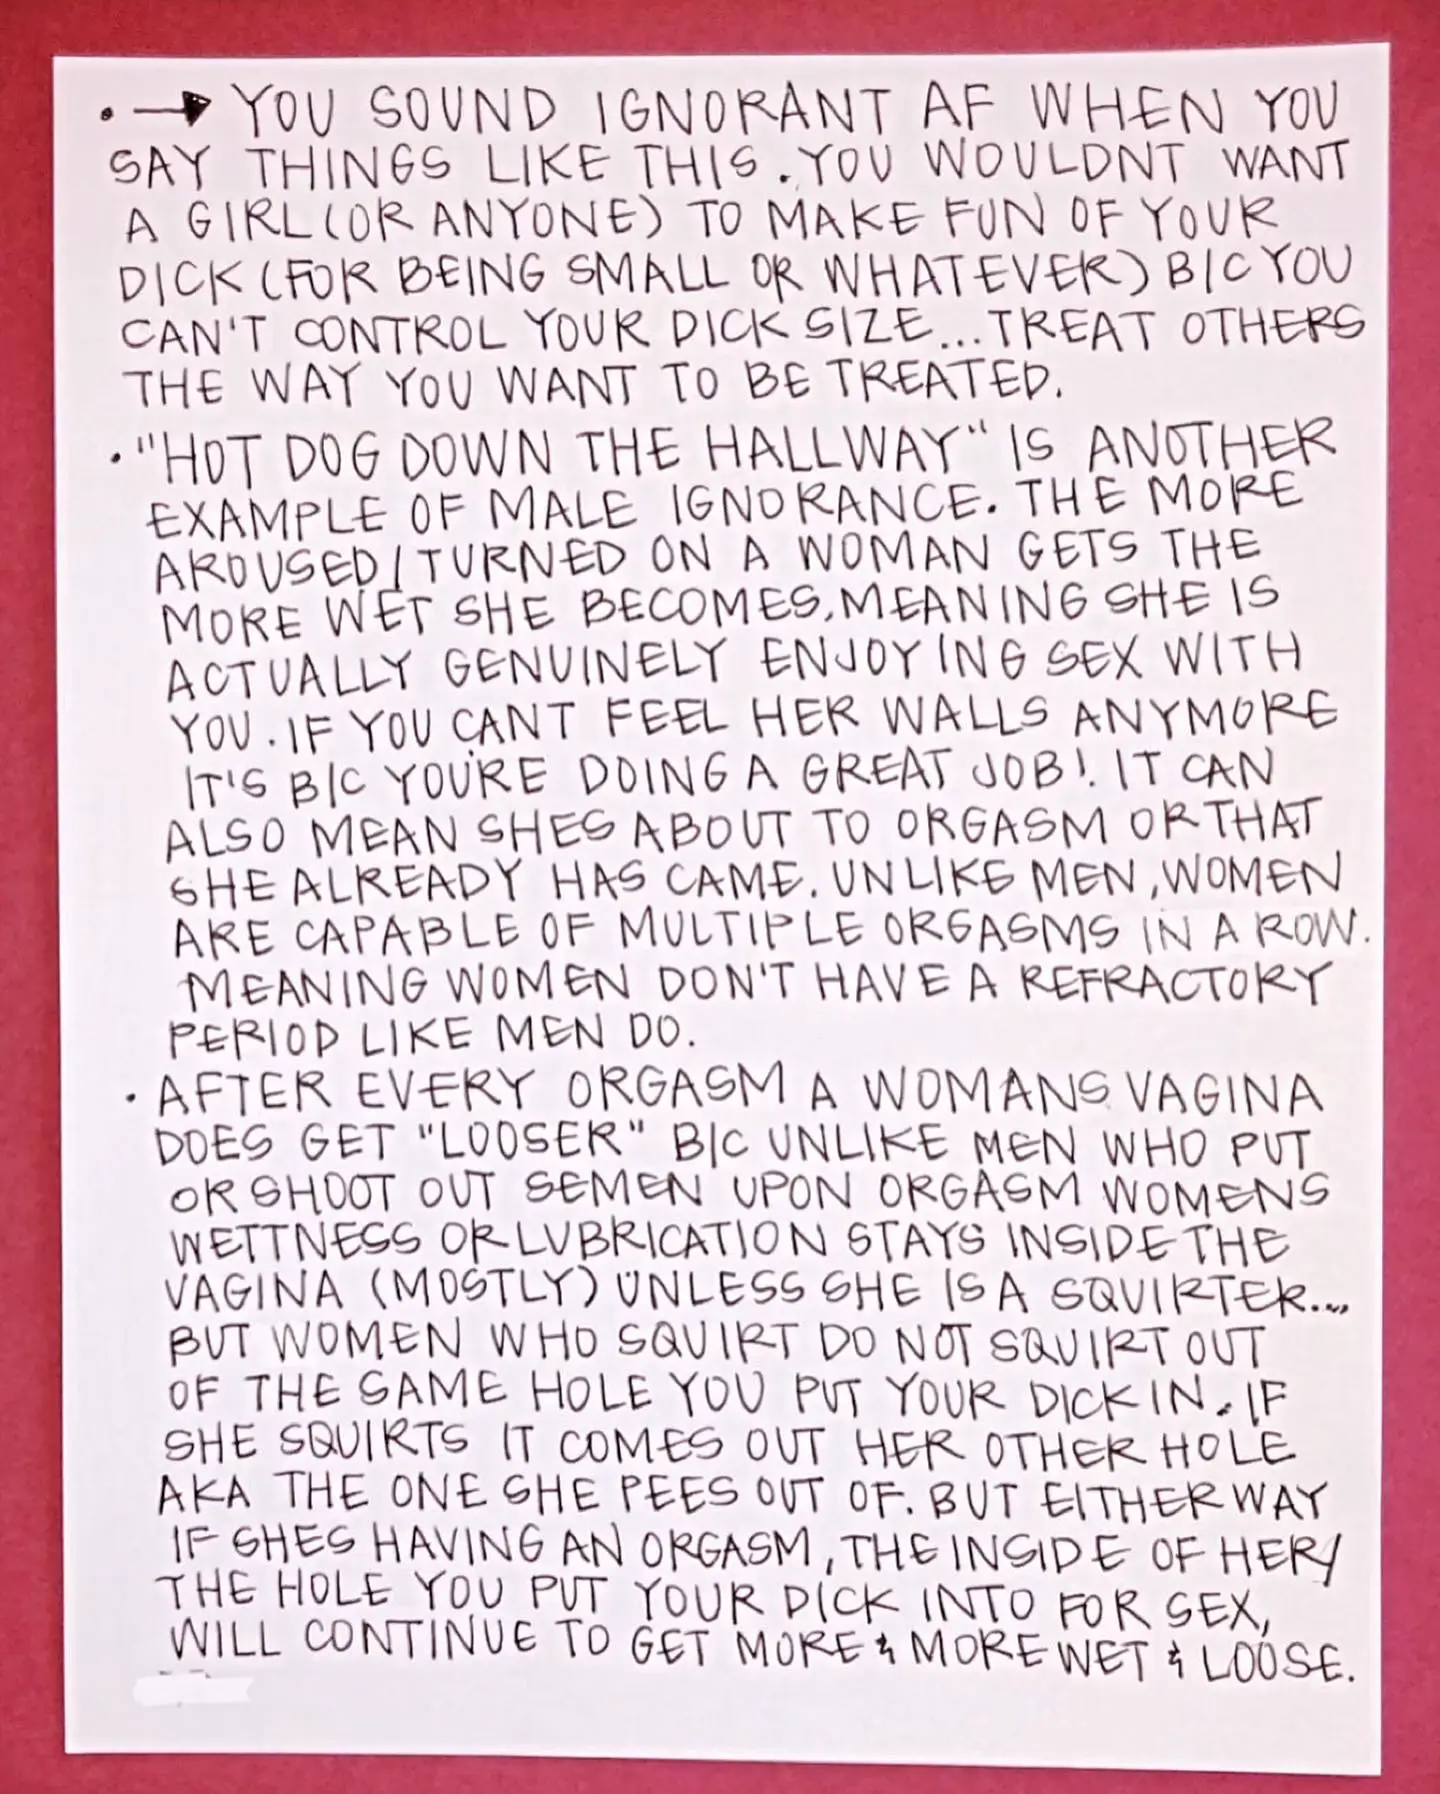 • → YOU SOUND IGNORANT AF WHEN YOU
SAY THINGS LIKE THIS. YOU WOULDNT WANT
A GIRL (OR ANYONE) TO MAKE FUN OF YOUR
DICK (FOR BEING SMALL OR WHATEVER) B/C YOU
CAN'T CONTROL YOUR DICK SIZE...TREAT OTHERS
THE WAY YOU WANT TO BE TREATED.
• "HOT DOG DOWN THE HALLWAY" IS ANOTHER
EXAMPLE OF MALE IGNORANCE. THE MORE
AROUSED/TURNED ON A WOMAN GETS THE
MORE WET SHE BECOMES, MEANING SHE IS
ACTUALLY GENUINELY ENJOYING SEX WITH
YOU. IF YOU CANT FEEL HER WALLS ANYMORE
IT'S B/C YOU'RE DOING A GREAT JOB! IT CAN
ALSO MEAN SHES ABOUT TO ORGASM OR THAT
SHE ALREADY HAS CAME. UNLIKE MEN, WOMEN
ARE CAPABLE OF MULTIPLE ORGASMS IN A ROW.
MEANING WOMEN DON'T HAVE A REFRACTORY
PERIOD LIKE MEN DO.
• AFTER EVERY ORGASM A WOMANS VAGINA
DOES GET "LOOSER" B/C UNLIKE MEN WHO PUT
OR SHOOT OUT SEMEN UPON ORGASM WOMENS
WETTNESS OR LUBRICATION STAYS INSIDE THE
VAGINA (MOSTLY) UNLESS SHE IS A SQUIRTER....
BUT WOMEN WHO SQUIRT DO NOT SQUIRT OUT
OF THE SAME HOLE YOU PUT YOUR DICK IN. IF
SHE SQUIRTS IT COMES OUT HER OTHER HOLE
AKA THE ONE SHE PEES OUT OF. BUT EITHER WAY
IF SHES HAVING AN ORGASM, THE INSIDE OF HER/
THE HOLE YOU PUT YOUR DICK INTO FOR SEX,
WILL CONTINUE TO GET MORE & MORE WET & LOOSE.